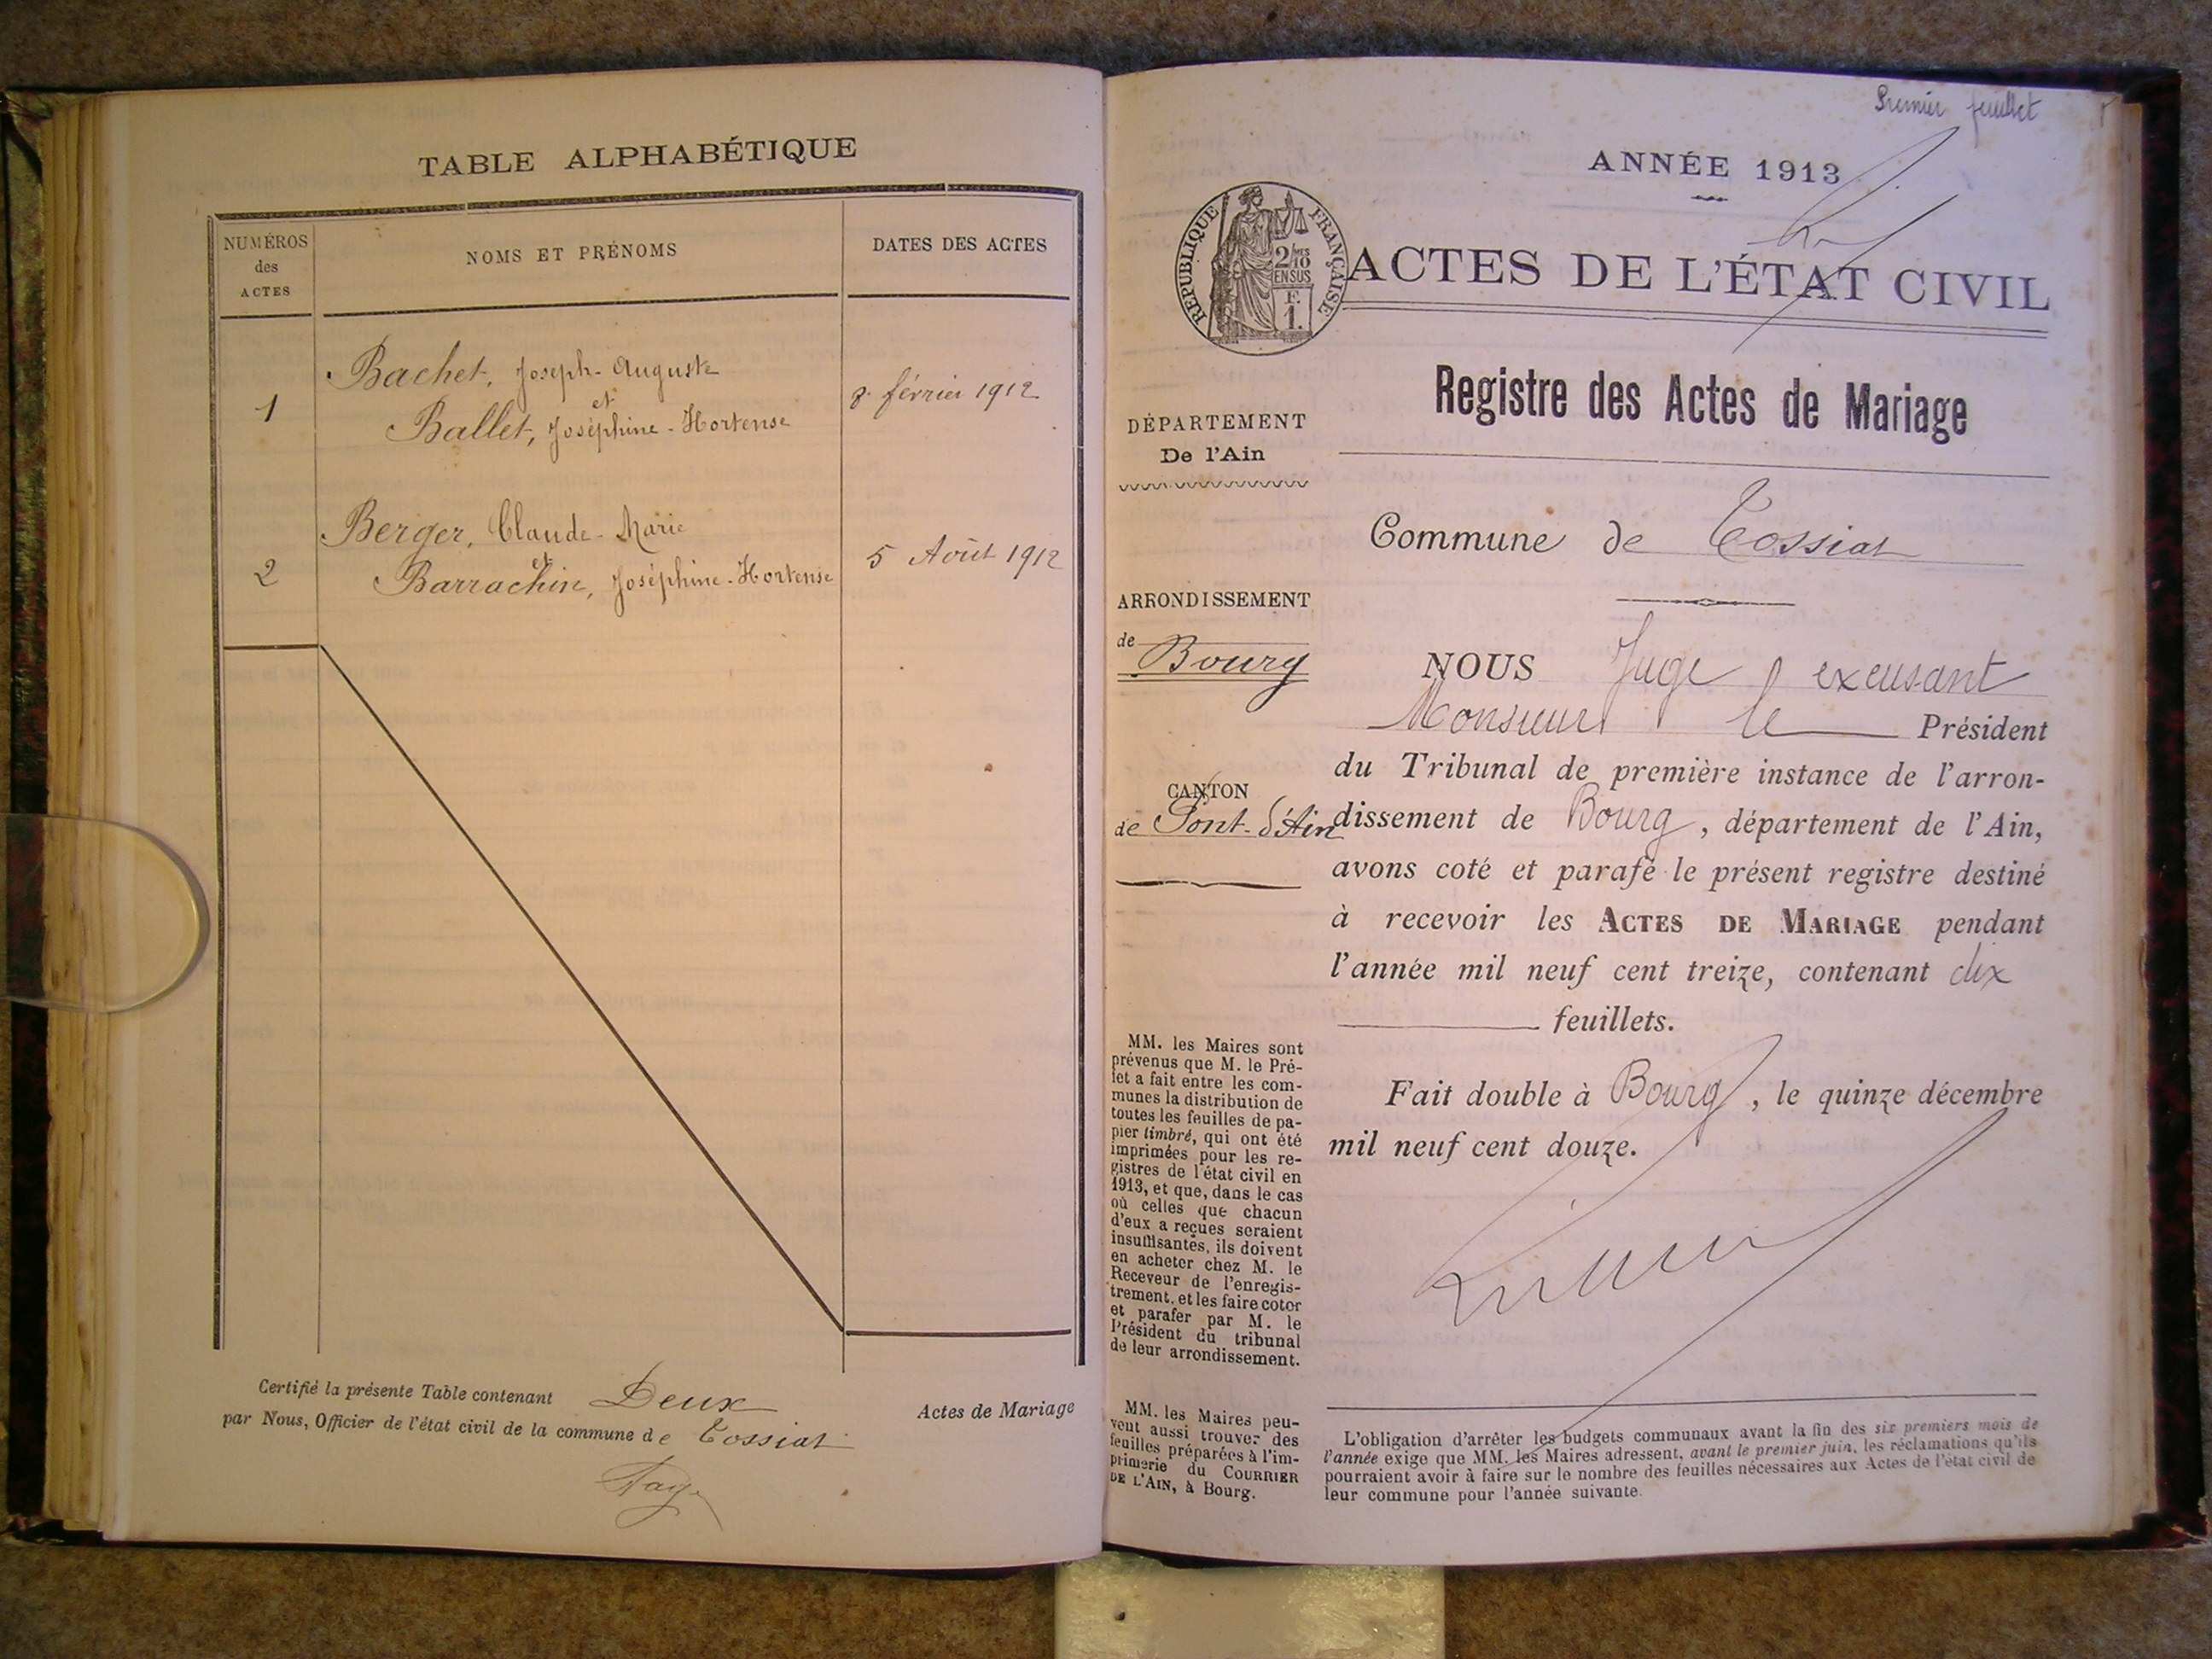 TABLE ALPHABÉTIQUE
NUMÉROS
des
ACTES
NOMS ET PRÉNOMS
DATES DES ACTES
1
Bachet, Joseph-Auguste
et
Ballet, Joséphine-Hortense
8 février 1912
2
Berger, Claude-Marie
et
Barrachin, Joséphine-Hortense
5 Août 1912
Certifié la présente Table contenant Deux Actes de Mariage
par Nous, Officier de l'état civil de la commune de Tossiat
Premier feuillet
ANNÉE 1913
RÉPUBLIQUE FRANÇAISE
2/10
EN SUS
F.
1.
ACTES DE L'ÉTAT CIVIL
Registre des Actes de Mariage
DÉPARTEMENT
De l'Ain
Commune de Tossiat
ARRONDISSEMENT
de Bourg
CANTON
de Pont-d'Ain
NOUS Juge excusant
Monsieur le Président
du Tribunal de première instance de l'arron-
dissement de Bourg, département de l'Ain,
avons coté et parafé le présent registre destiné
à recevoir les ACTES DE MARIAGE pendant
l'année mil neuf cent treize, contenant dix
feuillets.
Fait double à Bourg, le quinze décembre
mil neuf cent douze.
MM. les Maires sont
prévenus que M. le Pré-
fet a fait entre les com-
munes la distribution de
toutes les feuilles de pa-
pier timbré, qui ont été
imprimées pour les re-
gistres de l'état civil en
1913, et que, dans le cas
où celles que chacun
d'eux a reçues seraient
insuffisantes, ils doivent
en acheter chez M. le
Receveur de l'enregis-
trement, et les faire coter
et parafer par M. le
Président du tribunal
de leur arrondissement.
MM. les Maires peu-
vent aussi trouver des
feuilles préparées à l'im-
primerie du COURRIER
DE L'AIN, à Bourg.
L'obligation d'arrêter les budgets communaux avant la fin des six premiers mois de
l'année exige que MM. les Maires adressent, avant le premier juin, les réclamations qu'ils
pourraient avoir à faire sur le nombre des feuilles nécessaires aux Actes de l'état civil de
leur commune pour l'année suivante.